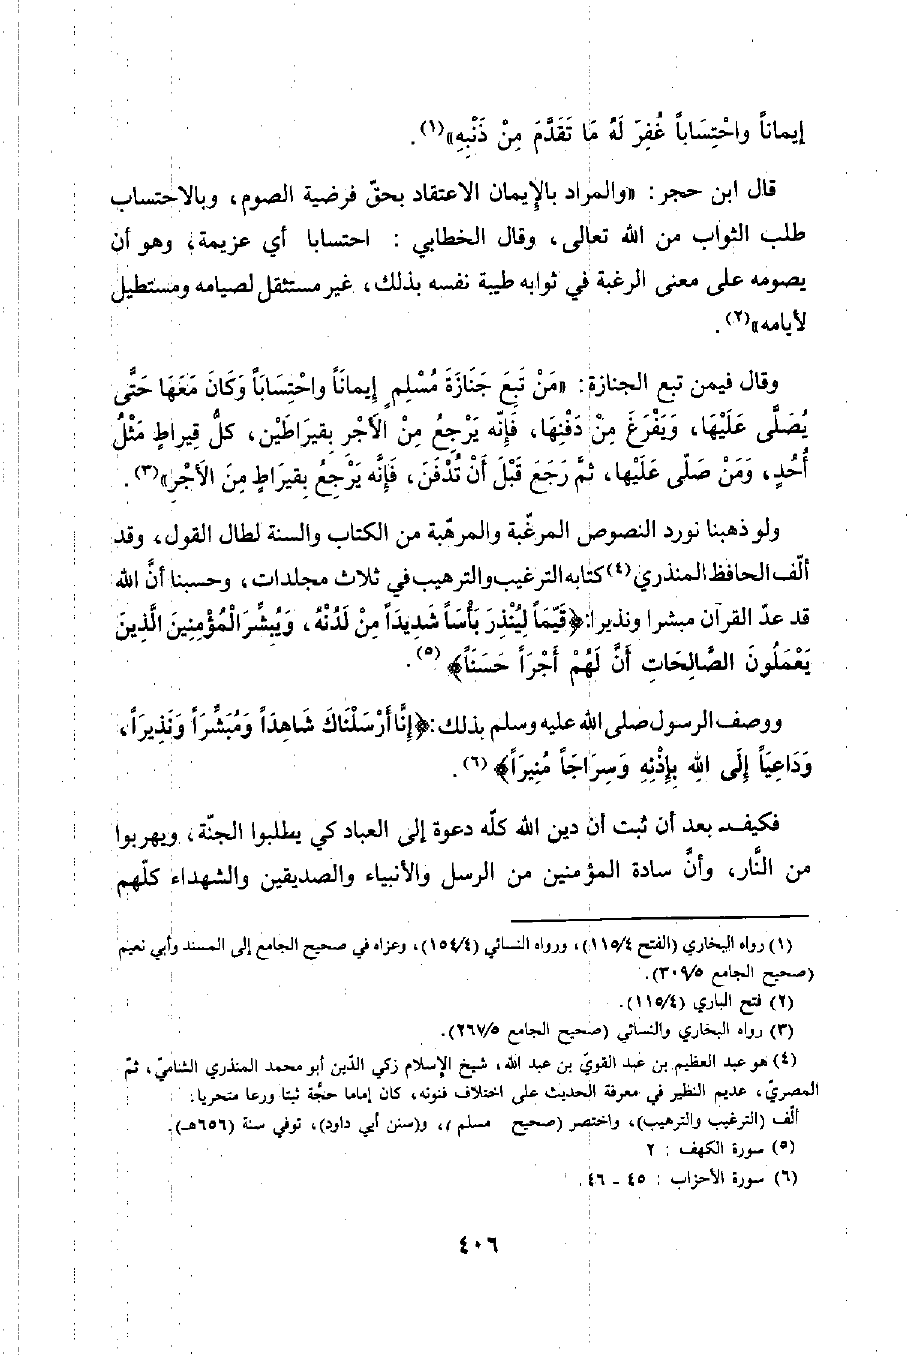 إيماناً واحْتِسَاباً غُفِرَ لَهُ مَا تَقَدَّمَ مِنْ ذَنْبِهِ»(١).
قال ابن حجر: «والمراد بالإيمان الاعتقاد بحقّ فرضية الصوم، وبالاحتساب
طلب الثواب من الله تعالى، وقال الخطابي : احتسابا أي عزيمة، وهو أن
يصومه على معنى الرغبة في ثوابه طيبة نفسه بذلك، غير مستثقل لصيامه ومستطيل
لأيامه»(٢).
وقال فيمن تبع الجنازة: «مَنْ تَبِعَ جَنَازَةَ مُسْلِمٍ إِيمَانَاً واحْتِسَابَاً وَكَانَ مَعَهَا حَتَّى
يُصَلَّى عَلَيْهَا، وَيَفْرَغَ مِنْ دَفْنِهَا، فَإِنّه يَرْجِعُ مِنْ الَأجْرِ بِقيرَاطَيْن، كلُّ قِيراطٍ مَثْلُ
أُحُدٍ، وَمَنْ صَلّى عَلَيْها، ثمَّ رَجَعَ قَبْلَ أَنْ تُدْفَنَ، فَإِنَّه يَرْجِعُ بِقيرَاطٍ مِنَ الَأجْرِ»(٣).
ولو ذهبنا نورد النصوص المرغّبة والمرهّبة من الكتاب والسنة لطال القول، وقد
ألّف الحافظ المنذري(٤) كتابه الترغيب والترهيب في ثلاث مجلدات، وحسبنا أنَّ الله
قد عدّ القرآن مبشرا ونذيرا: ﴿قَيِّمَاً لِيُنْذِرَ بَأْسَاً شَدِيدَاً مِنْ لَدُنْهُ، وَيُبْشِّرَ الْمُؤْمِنِينَ الَّذِينَ
يَعْمَلُونَ الصَّالِحَاتِ أَنَّ لَهُمْ أَجْرَاً حَسَنَاً﴾(٥).
ووصف الرسول صلى الله عليه وسلم بذلك: ﴿إِنَّا أَرْسَلْنَاكَ شَاهِدَاً وَمُبَشِّرَاً وَنَذِيرَاً،
وَدَاعِيَاً إِلَى اللهِ بِإِذْنِهِ وَسِرَاجَاً مُنِيرَاً﴾(٦).
فكيف بعد أن ثبت أن دين الله كلّه دعوة إلى العباد كي يطلبوا الجنّة، ويهربوا
من النَّار، وأنَّ سادة المؤمنين من الرسل والأنبياء والصديقين والشهداء كلّهم
(١) رواه البخاري (الفتح ١١٥/٤)، ورواه النسائي (١٥٤/٤)، وعزاه في صحيح الجامع إلى المسند وأبي نعيم
(صحيح الجامع ٣٠٩/٥).
(٢) فتح الباري (١١٥/٤).
(٣) رواه البخاري والنسائي (صحيح الجامع ٢٦٧/٥).
(٤) هو عبد العظيم بن عبد القويّ بن عبد الله، شيخ الإسلام زكي الدّين أبو محمد المنذري الشاميّ، ثمّ
المصريّ، عديم النظير في معرفة الحديث على اختلاف فنونه، كان إماما حجّة ثبتا ورعا متحريا.
ألّف (الترغيب والترهيب)، واختصر (صحيح مسلم)، و(سنن أبي داود)، توفي سنة (٦٥٦هـ).
(٥) سورة الكهف : ٢
(٦) سورة الأحزاب : ٤٥ - ٤٦.
٤٠٦